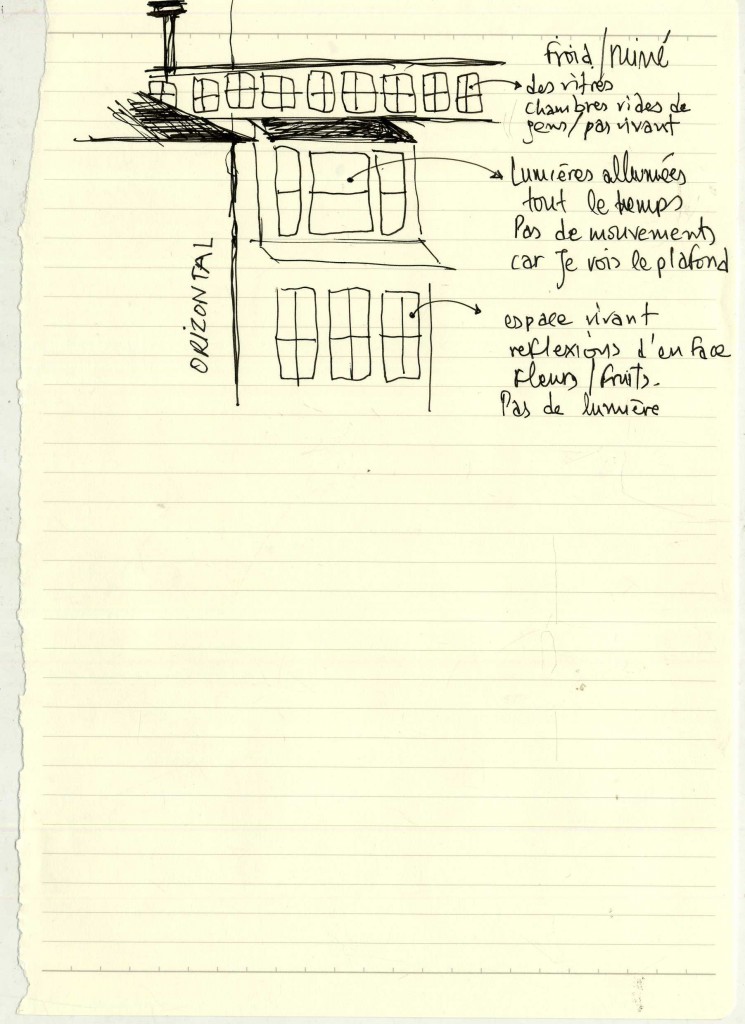 Froid/Ruiné
des vitres
chambres vides de
gens/pas vivant
Lumières allumées
tout le temps
Pas de mouvements
car je vois le plafond
ORIZONTAL
espace vivant
reflexions d'en face
Fleurs/fruits.
Pas de lumière